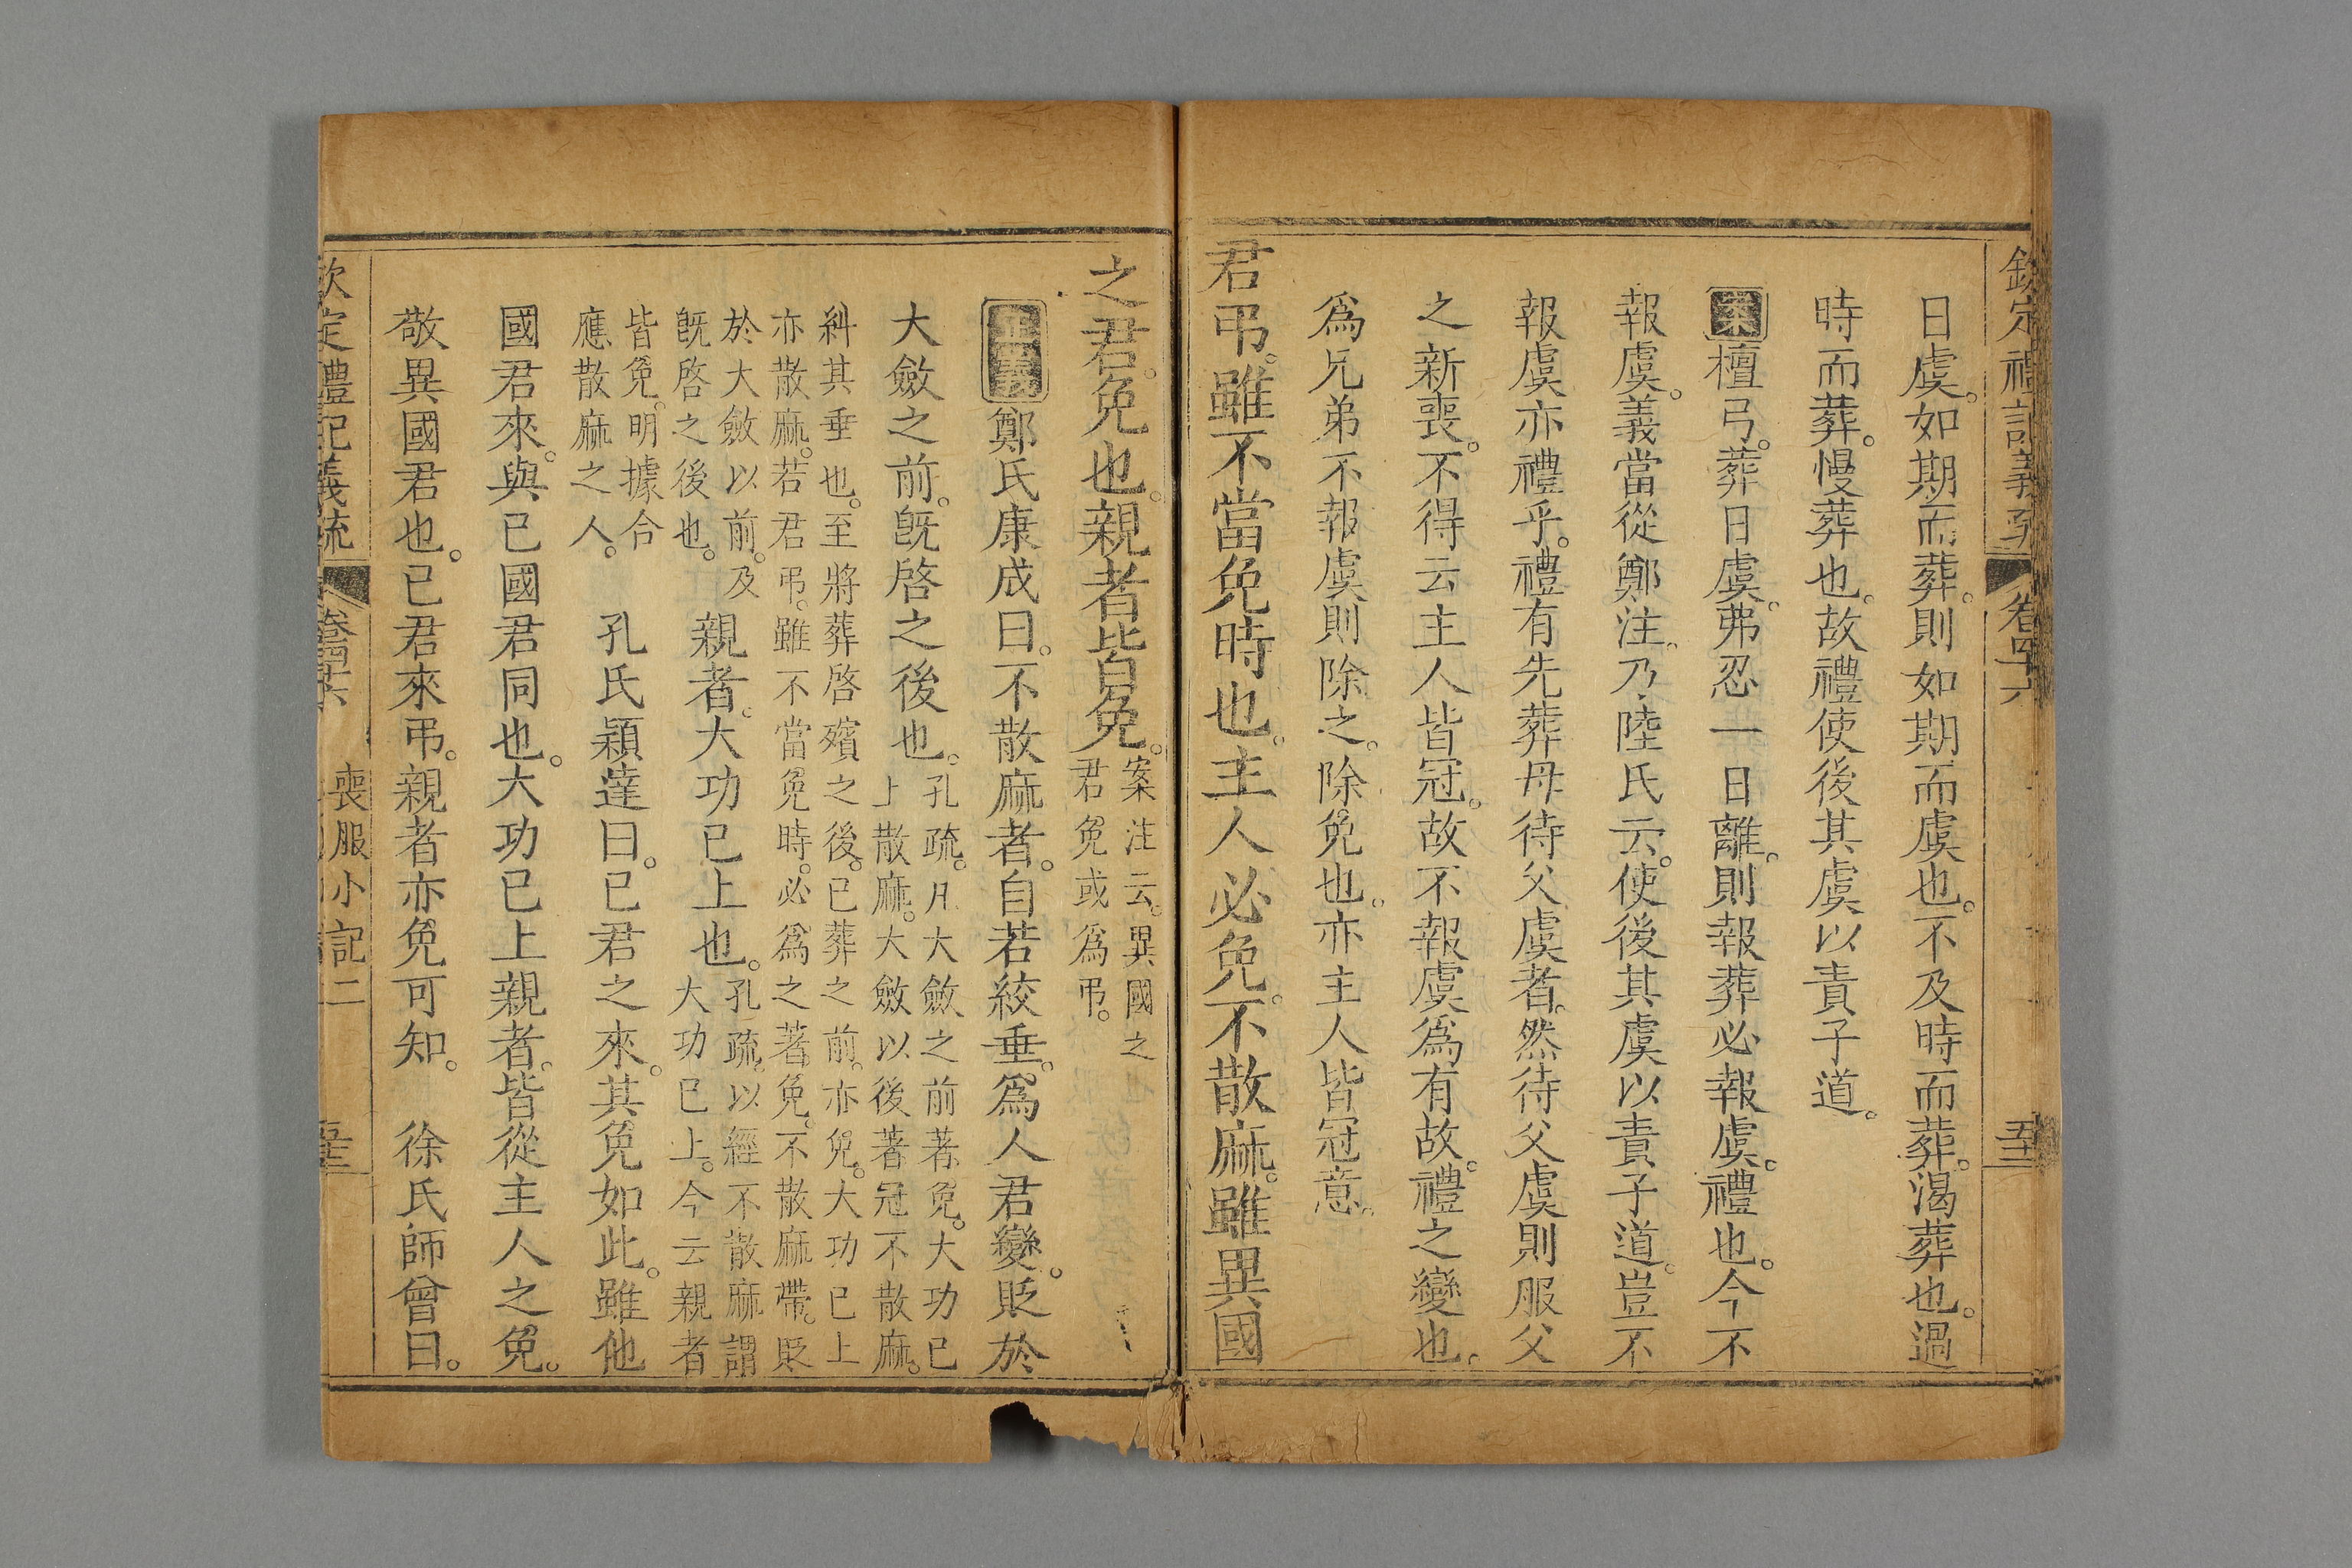 欽定禮記義疏 卷四十六 五十三
日虞。如期而葬。則如期而虞也。不及時而葬。渴葬也。過
時而葬。慢葬也。故禮使後其虞以責子道。
案檀弓。葬日虞。弗忍一日離。則報葬必報虞。禮也。今不
報虞。義當從鄭注。乃陸氏云。使後其虞以責子道。豈不
報虞亦禮乎。禮有先葬母待父虞者。然待父虞則服父
之新喪。不得云主人皆冠。故不報虞爲有故。禮之變也。
爲兄弟不報虞則除之。除免也。亦主人皆冠意。
君弔。雖不當免時也。主人必免。不散麻。雖異國
之君。免也。親者皆免。
案注云。異國之
君免或爲弔。
正義鄭氏康成曰。不散麻者。自若絞垂。爲人君變。貶於
大斂之前。既啓之後也。
孔疏。凡大斂之前著免。大功已
上散麻。大斂以後著冠不散麻。
糾其垂也。至將葬啓殯之後。已葬之前。亦免。大功已上
亦散麻。若君弔。雖不當免時。必爲之著免。不散麻帶。貶
於大斂以前。及
既啓之後也。
親者。大功已上也。
孔疏。以經不散麻謂
大功已上。今云親者
皆免。明據合
應散麻之人。
孔氏穎達曰。已君之來。其免如此。雖他
國君來。與已國君同也。大功已上親者。皆從主人之免。
敬異國君也。已君來弔。親者亦免可知。 徐氏師曾曰。
欽定禮記義疏 卷四十六 喪服小記二 五十三